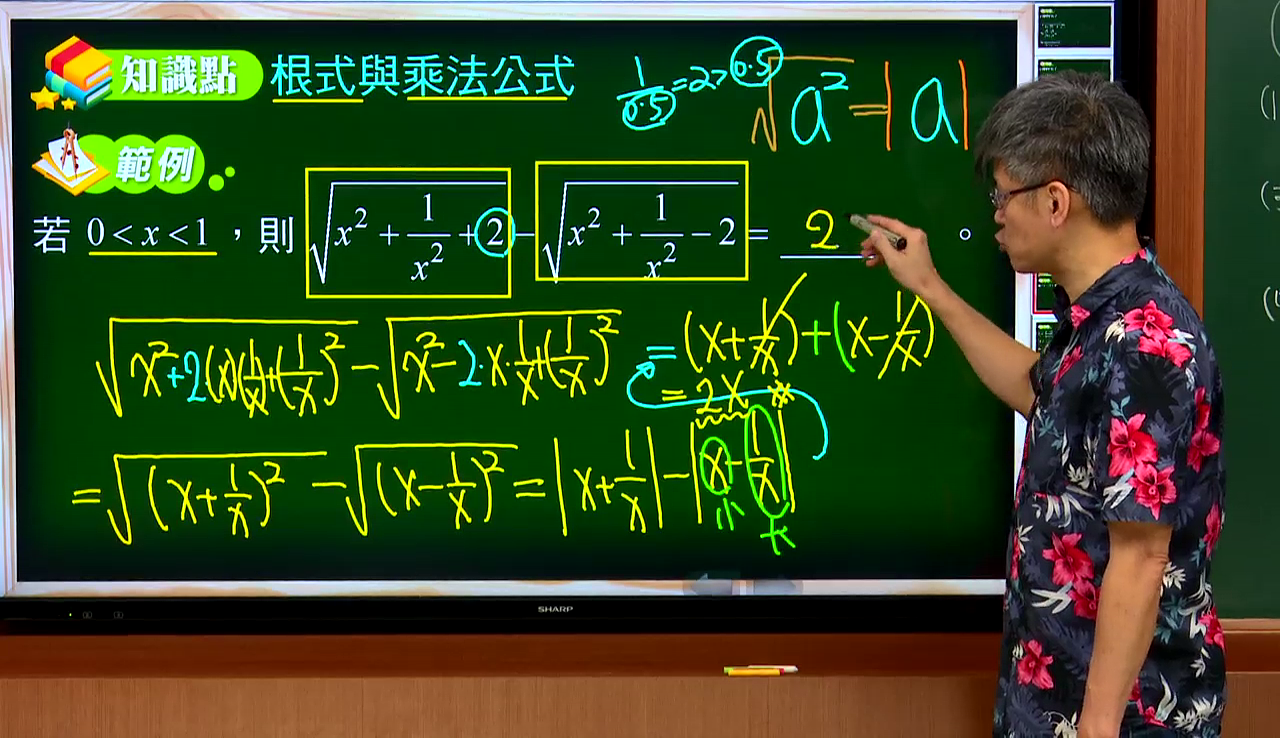 知識點 根式與乘法公式
1/0.5 = 2 > 0.5
√(a²) = |a|
範例
若 0 < x < 1，則 √(x² + 1/x² + 2) − √(x² + 1/x² − 2) = 2 。
√(x² + 2·(x)(1/x) + (1/x)²) − √(x² − 2·x·1/x + (1/x)²)
= (x + 1/x) + (x − 1/x)
= 2x
= √((x + 1/x)²) − √((x − 1/x)²) = |x + 1/x| − |x − 1/x|
小 大
SHARP